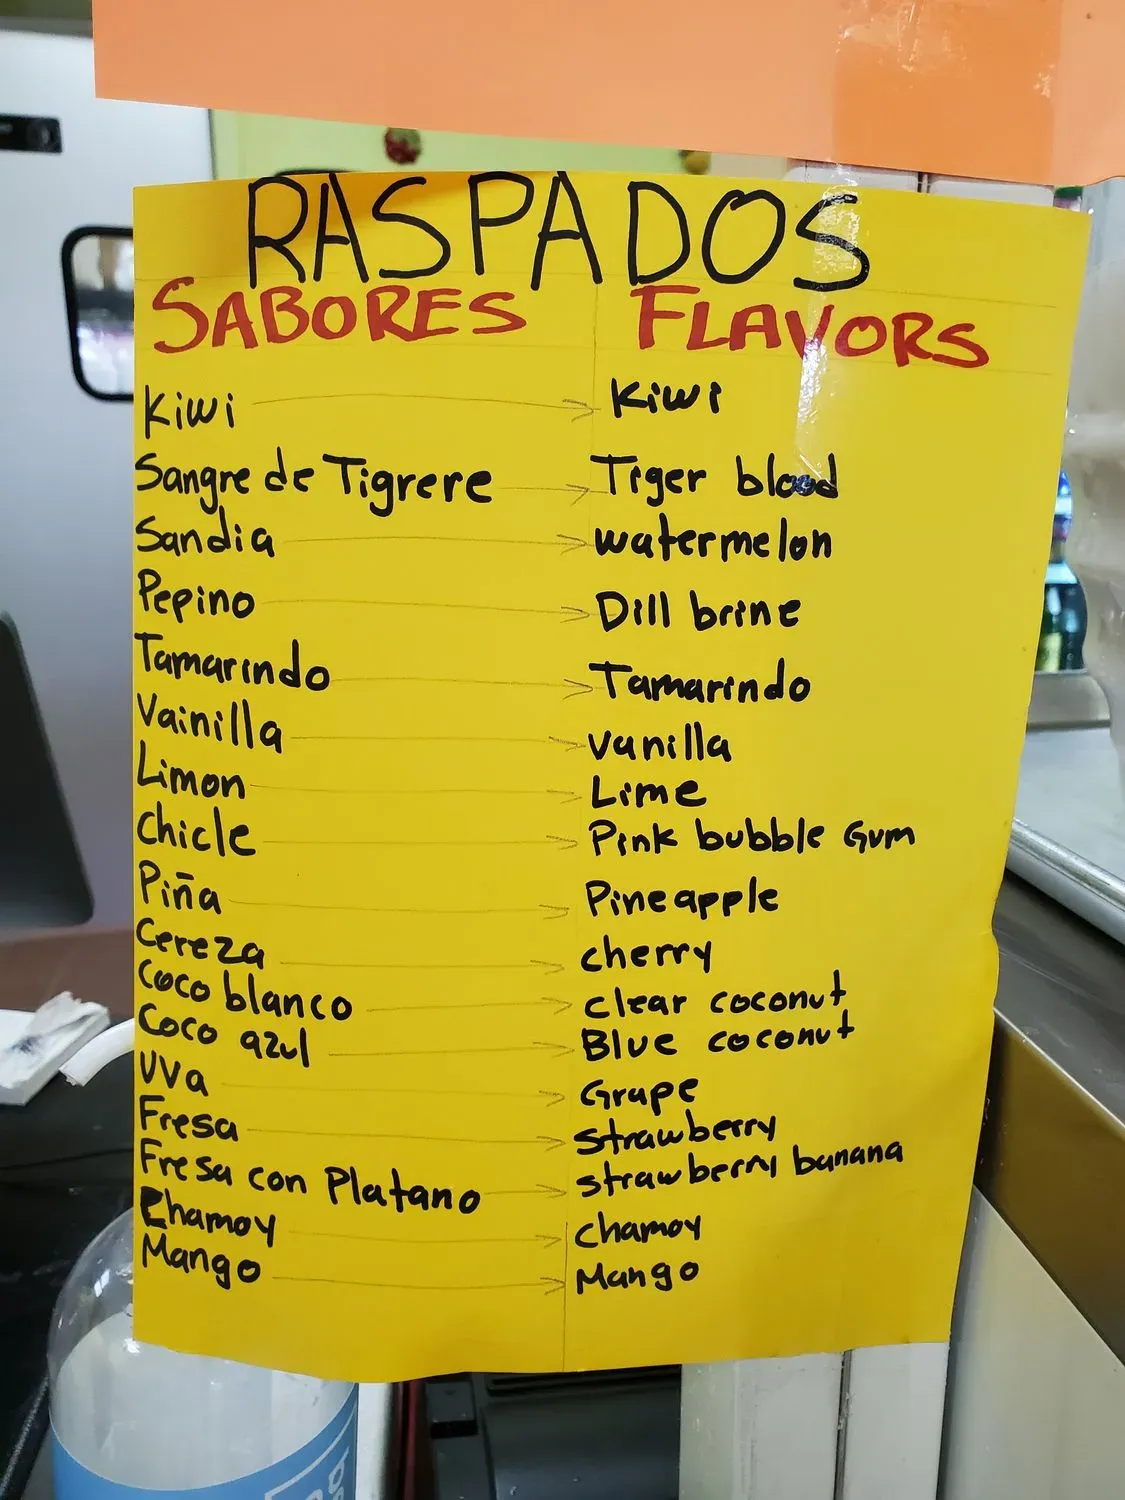 RASPADOS
SABORES FLAVORS
Kiwi Kiwi
Sangre de Tigrere Tiger blood
Sandia watermelon
Pepino Dill brine
Tamarindo Tamarindo
Vainilla vanilla
Limon Lime
Chicle Pink bubble Gum
Piña Pineapple
Cereza cherry
Coco blanco clear coconut
Coco azul Blue coconut
UVa Grape
Fresa strawberry
Fresa con Platano strawberry banana
Chamoy chamoy
Mango Mango